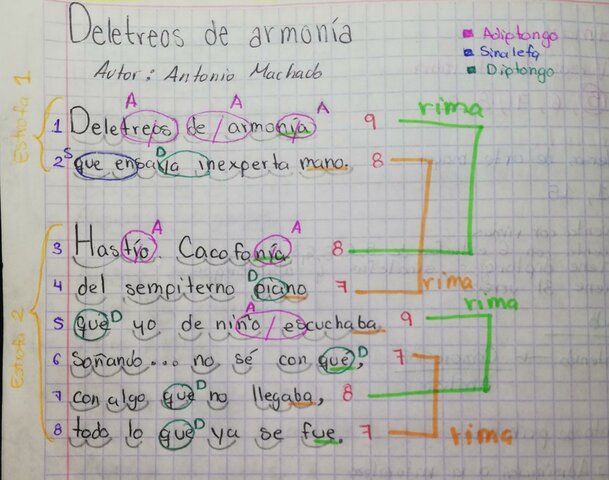 Deletreos de armonía
Adiptongo
Sinalefa
Diptongo
Autor: Antonio Machado
A A A
rima
Estrofa 1
1 Deletreos de / armonía 9
S D
2 que ensavia inexperta mano. 8
A A
3 Hastío. Cacofonía 8
D
4 del sempiterno piano 7 rima
A rima
5 que D yo de niño / escuchaba 9
Estrofa 2
6 soñando... no sé con qué, D 7
7 con algo que D no llegaba, 8
8 todo lo que D ya se fue. 7 rima